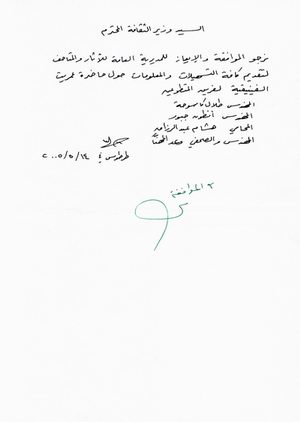 السيد وزير الثقافة المحترم
نرجو الموافقة والإيعاز للمديرية العامة للآثار والمتاحف
لتقديم كافة التسهيلات والمعلومات حول حاضرة عمريت
الفينيقية لفريق المتطوعين
المهندس طلال كاسوحة
المهندس أنطون جبور
المحامي هشام عبد الرزاق
المهندس والصحفي
طرطوس في ٢٠٠٥/٥/٢٤
الموافقة